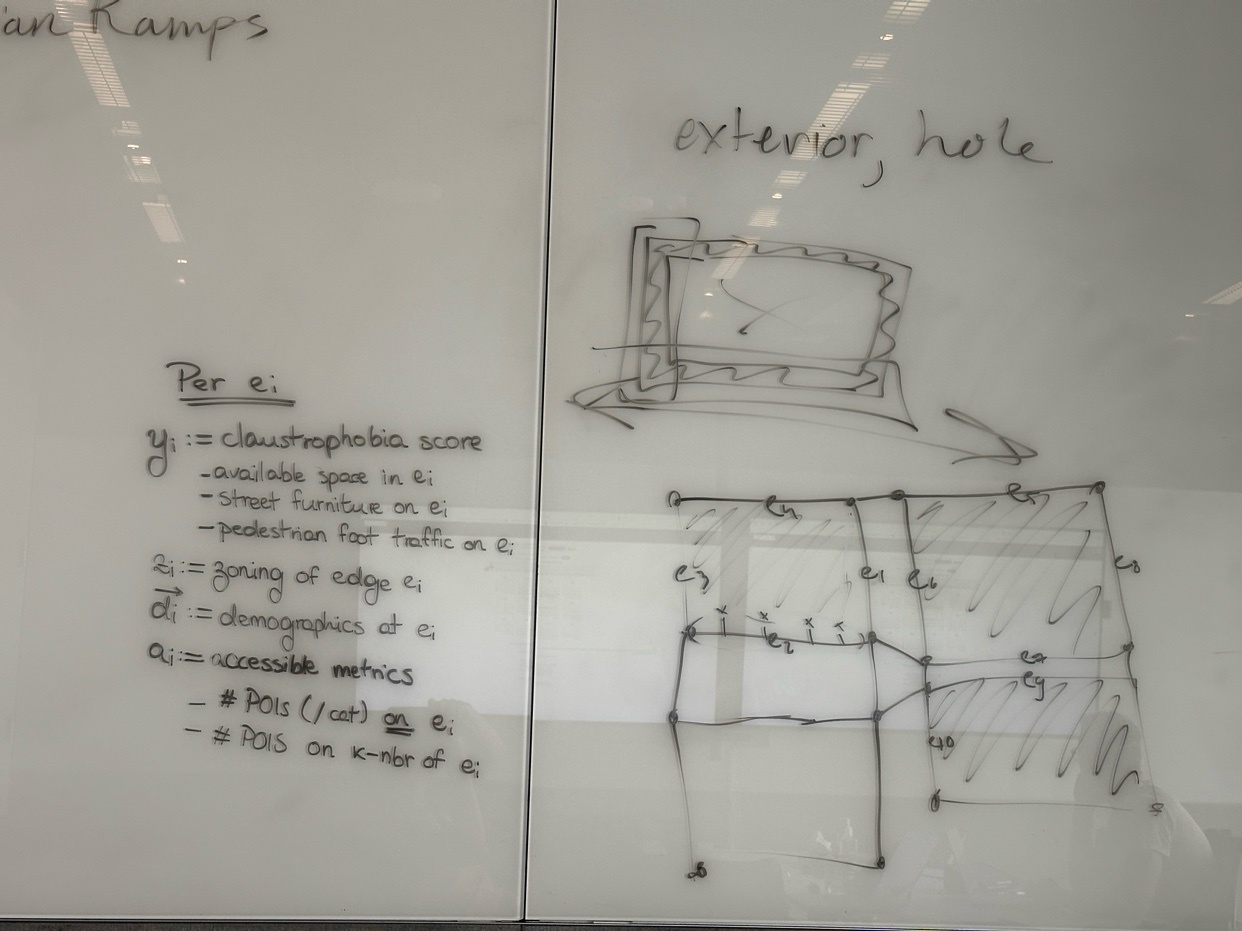 an Ramps
exterior, hole
Per ei
yi := claustrophobia score
- available space in ei
- street furniture on ei
- pedestrian foot traffic on ei
zi := zoning of edge ei
di := demographics at ei
ai := accessible metrics
- # POIs (/cat) on ei
- # POIS on k-nbr of ei
e4
e5
e3
e1
e6
e8
e2
e7
e9
e10